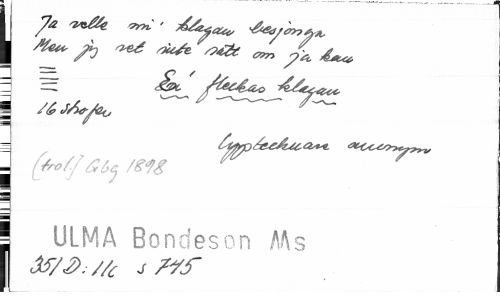 Ja velle mi' klagan besjonga
Men jg vet inte rätt om ja kan
En' flickas klagan
16 strofer
Upptecknare anonym
(trol.) Gbg 1898
ULMA Bondeson Ms
351 D: 11c s 745